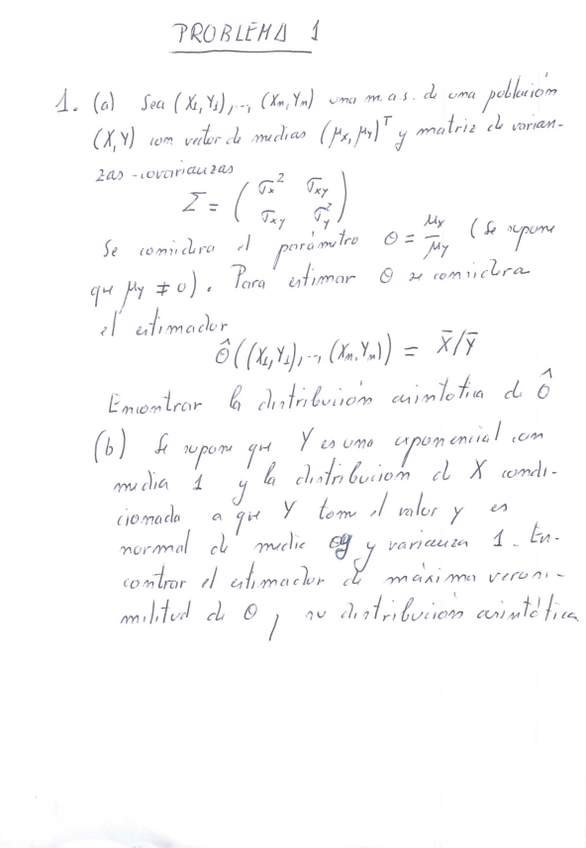 PROBLEMA 1
1. (a) Sea (X₁,Y₁),..,(Xₙ,Yₙ) una m.a.s. de una población
(X,Y) con vector de medias (μₓ,μᵧ)ᵀ y matriz de varian-
zas-covarianzas
Σ = ( σₓ² σₓᵧ
σₓᵧ σᵧ² )
Se considera el parámetro θ = μₓ/μᵧ (Se supone
que μᵧ ≠ 0). Para estimar θ se considera
el estimador
θ̂((X₁,Y₁),..,(Xₙ,Yₙ)) = X̄/Ȳ
Encontrar la distribución asintotica de θ̂
(b) Se supone que Y es una exponencial con
media 1 y la distribucion de X condi-
cionada a que Y tome el valor y es
normal de media θy y varianza 1. En-
contrar el estimador de máxima veros-
militud de θ y su distribución asintótica